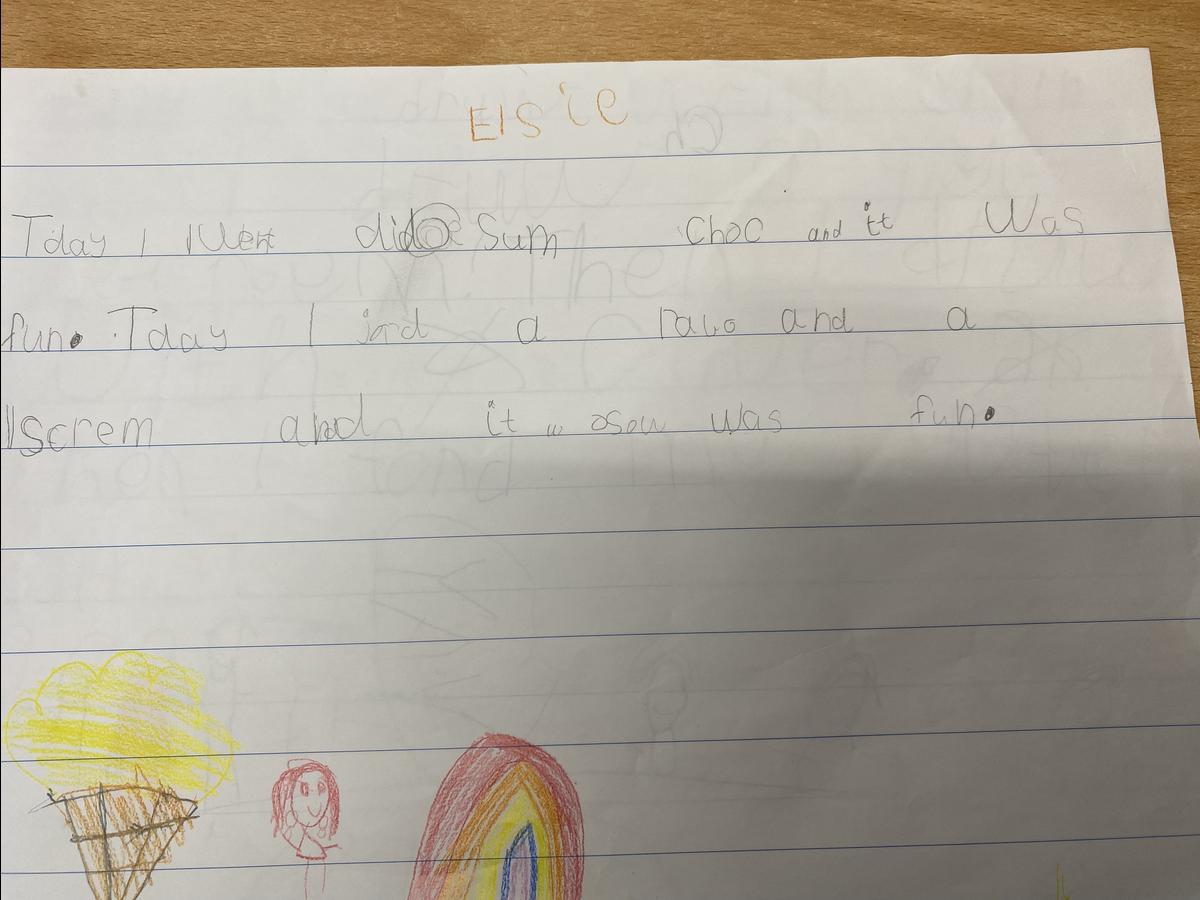 Elsie
Tday I Went did Sum Choc and it Was
fun. Tday I and a rabo and a
Iscrem and it osow was fun.